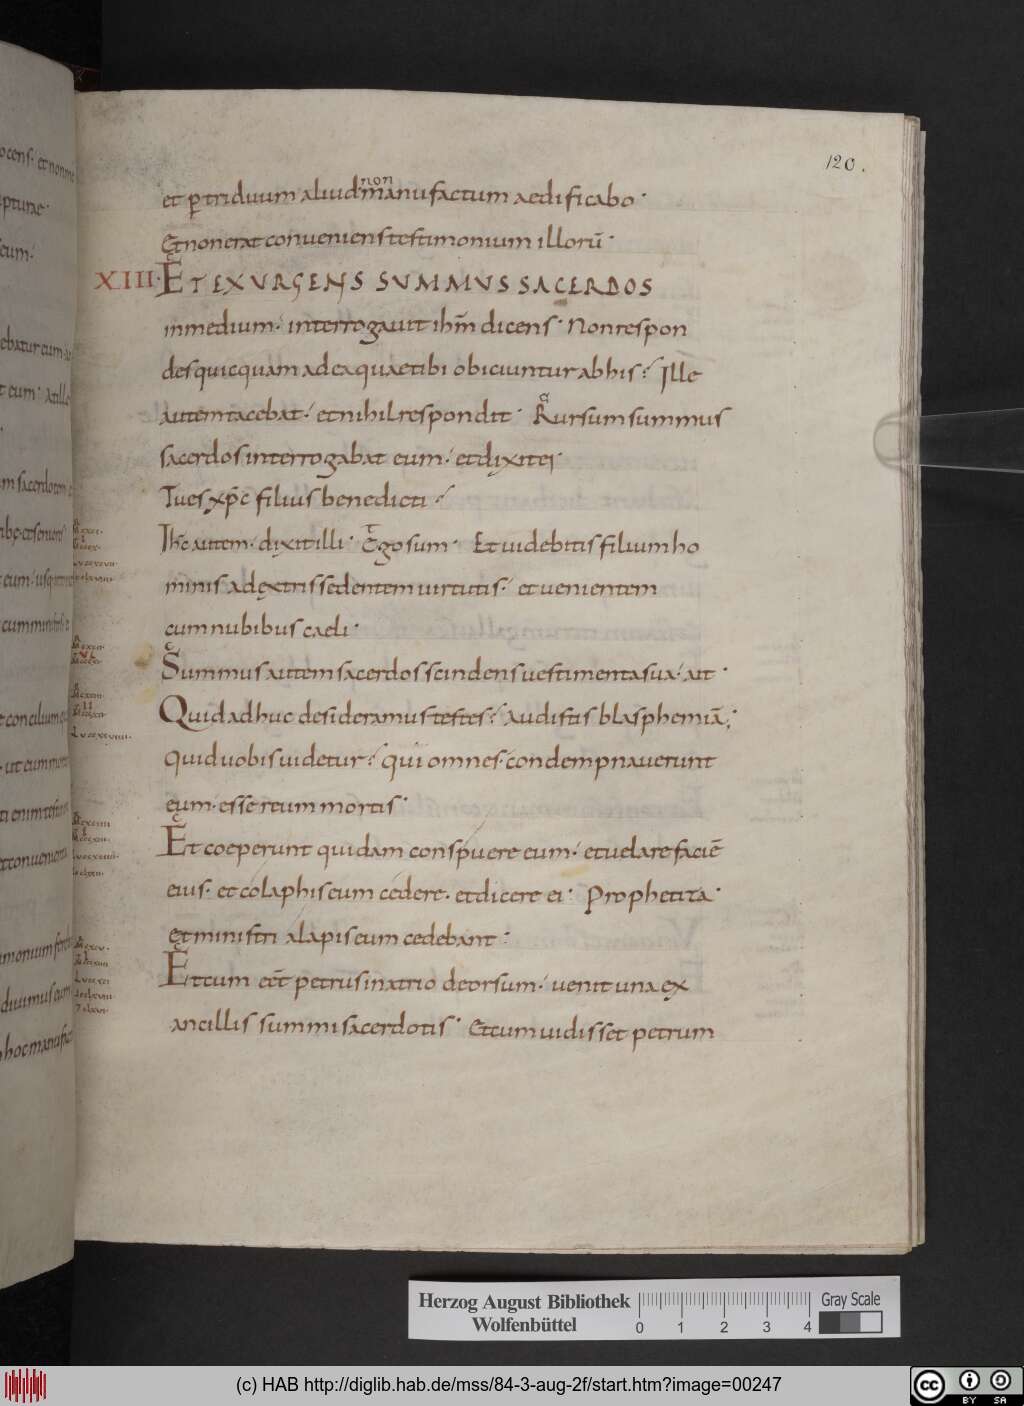 120.
et p̲triduum aliud non manufactum aedificabo·
Et non erat conueniens testimonium illorū·
XIII· ET EXURGENS SUMMUS SACERDOS
in medium· interrogauit ih̅m dicens· Non respon
des quicquam ad ea quae tibi obiciuntur ab his? Ille
autem tacebat· et nihil respondit· Rursum summus
sacerdos interrogabat eum· et dixit ei
Tu es xp̅c filius benedicti?
Ih̅c autem· dixit illi· Ego sum· Et uidebitis filium ho
minis a dextris sedentem uirtutis· et uenientem
cum nubibus caeli·
Summus autem sacerdos scindens uestimenta sua· ait·
Quid adhuc desideramus testes? Audistis blasphemiā;
quid uobis uidetur? qui omnes· condempnauerunt
eum· esse reum mortis·
Et coeperunt quidam conspuere eum· et uelare faciē
eius· et colaphis eum cedere· et dicere ei· Prophetiza·
et ministri alapis eum cedebant·
Et cum eēt petrus in atrio deorsum· uenit una ex
ancillis summi sacerdotis· Et cum uidisset petrum
Herzog August Bibliothek
Wolfenbüttel
0 1 2 3 4
Gray Scale
(c) HAB http://diglib.hab.de/mss/84-3-aug-2f/start.htm?image=00247
cc BY SA